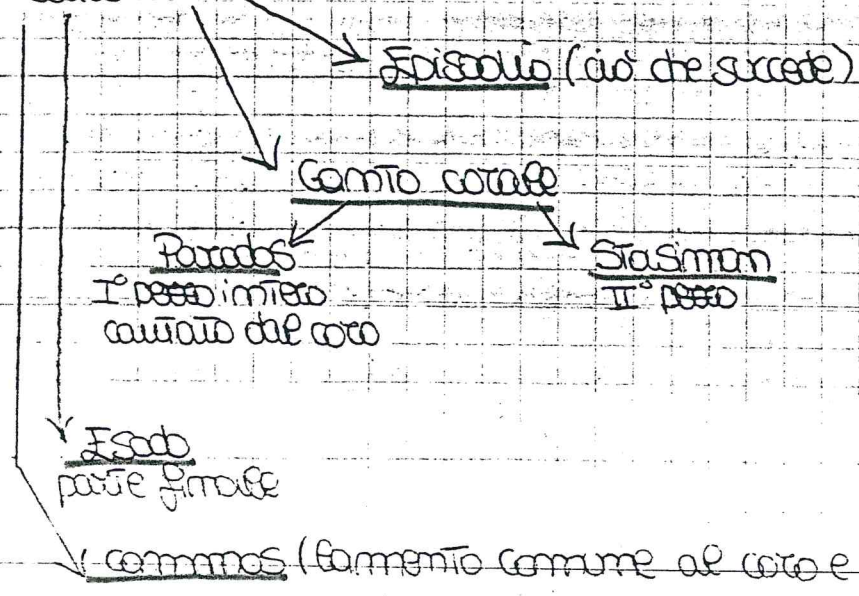 Episodio (ciò che succede)
Canto corale
Parodos
I° pezzo intero
cantato dal coro
Stasimon
II° pezzo
Esodo
parte finale
commos (lamento comune al coro e